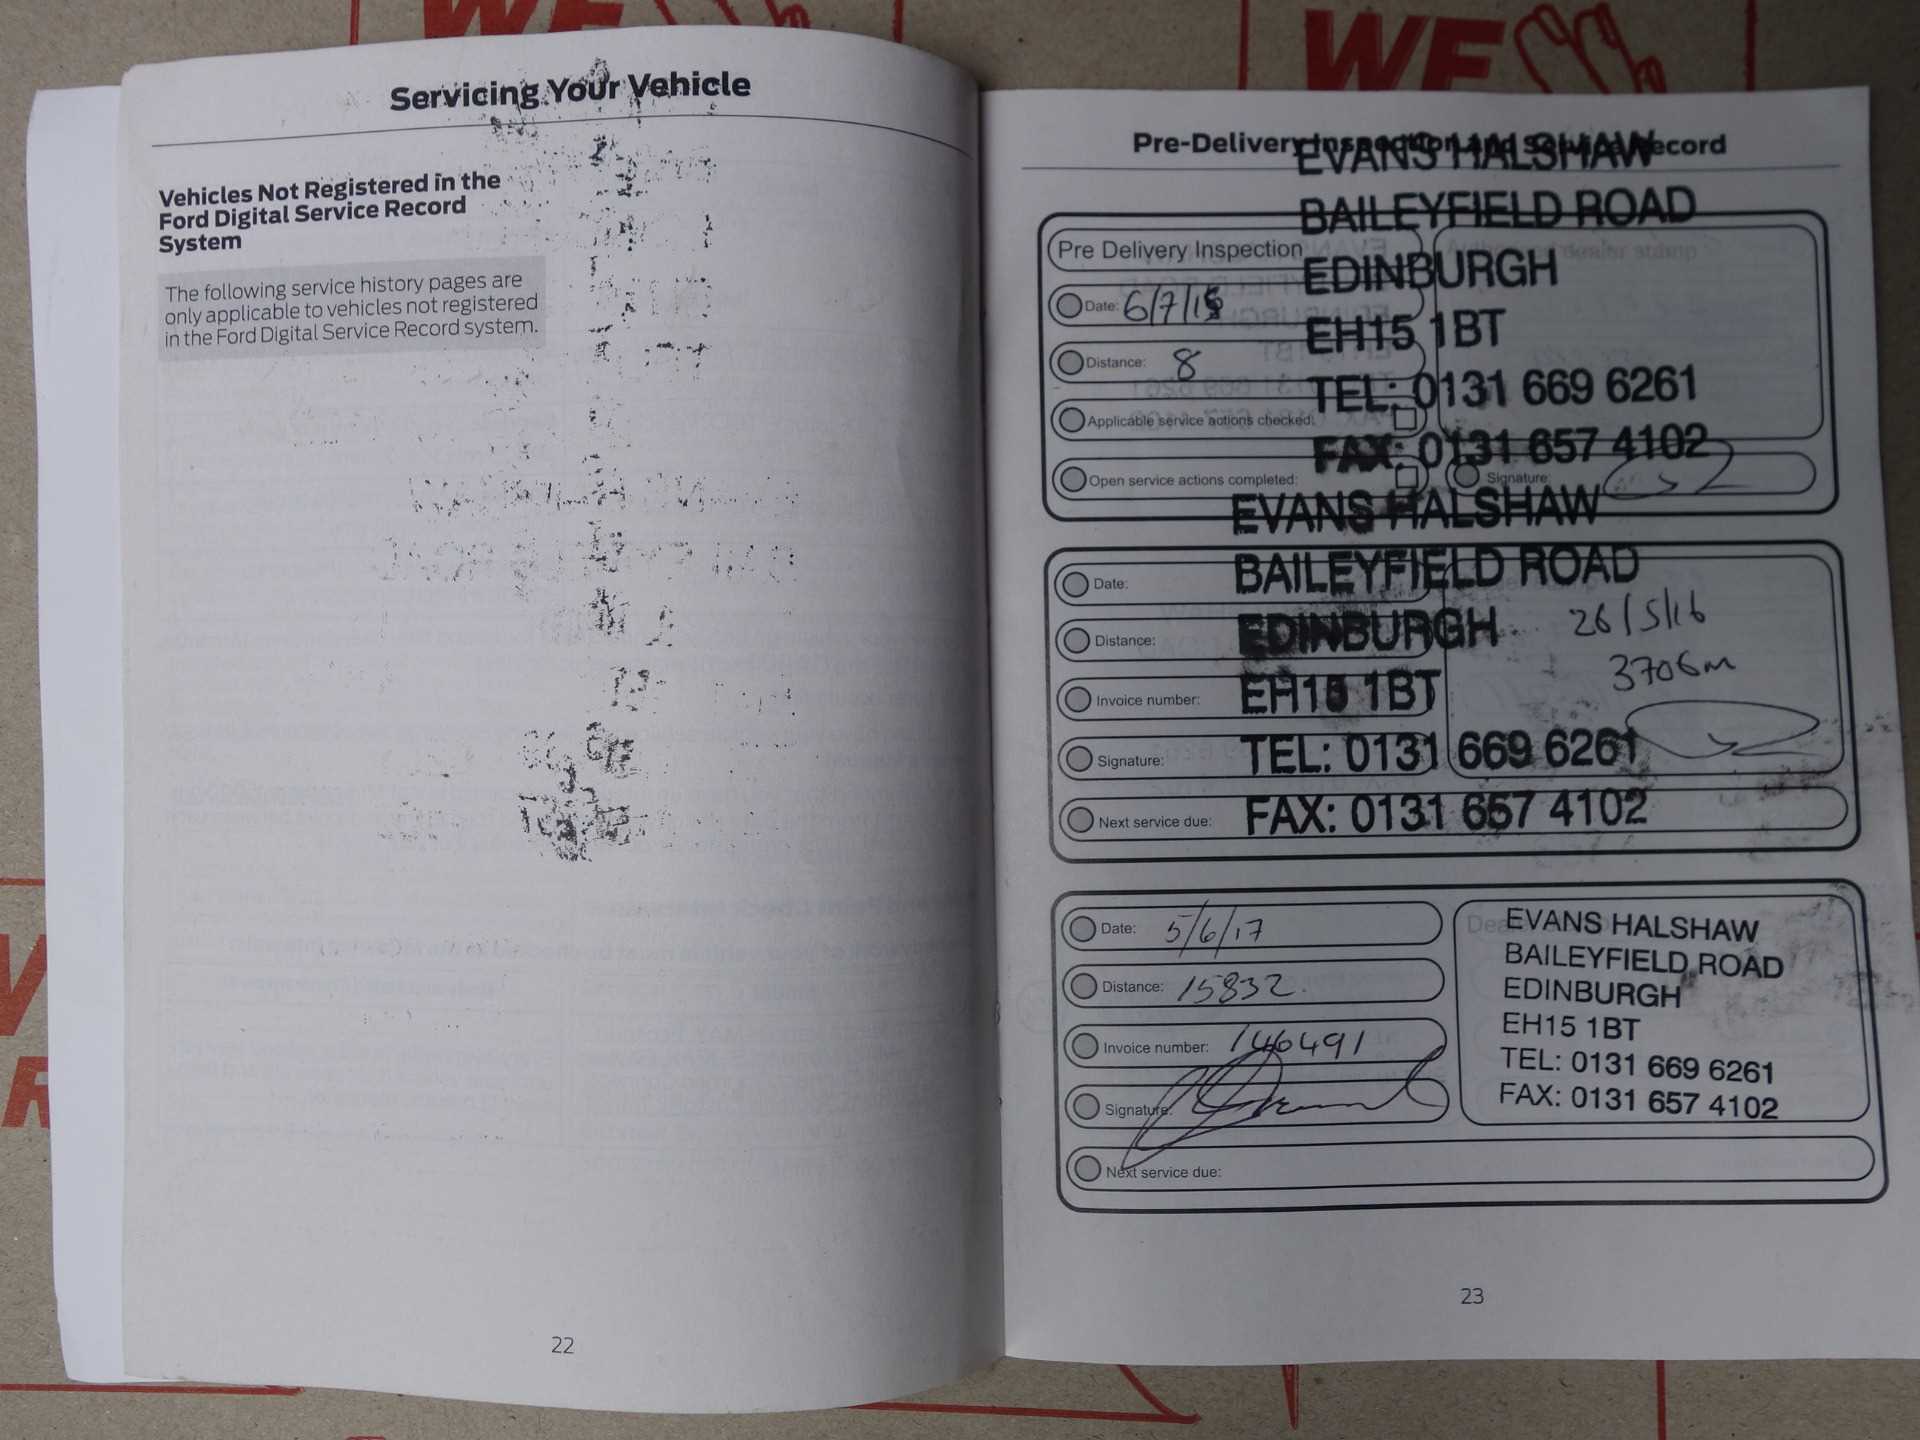 WE
WE
Servicing Your Vehicle
Vehicles Not Registered in the
Ford Digital Service Record
System
The following service history pages are
only applicable to vehicles not registered
in the Ford Digital Service Record system.
22
Pre-Delivery Inspection and Service Record
EVANS HALSHAW
BAILEYFIELD ROAD
EDINBURGH
EH15 1BT
TEL: 0131 669 6261
FAX: 0131 657 4102
Pre Delivery Inspection
Authorised dealer stamp
Date: 6/7/15
Distance: 8
Applicable service actions checked:
Open service actions completed:
Signature:
EVANS HALSHAW
BAILEYFIELD ROAD
EDINBURGH
EH15 1BT
TEL: 0131 669 6261
FAX: 0131 657 4102
Date:
Distance:
Invoice number:
Signature:
Next service due:
26/5/16
3706m
Date: 5/6/17
Distance: 15832.
Invoice number: 146491
Signature:
Next service due:
EVANS HALSHAW
BAILEYFIELD ROAD
EDINBURGH
EH15 1BT
TEL: 0131 669 6261
FAX: 0131 657 4102
23